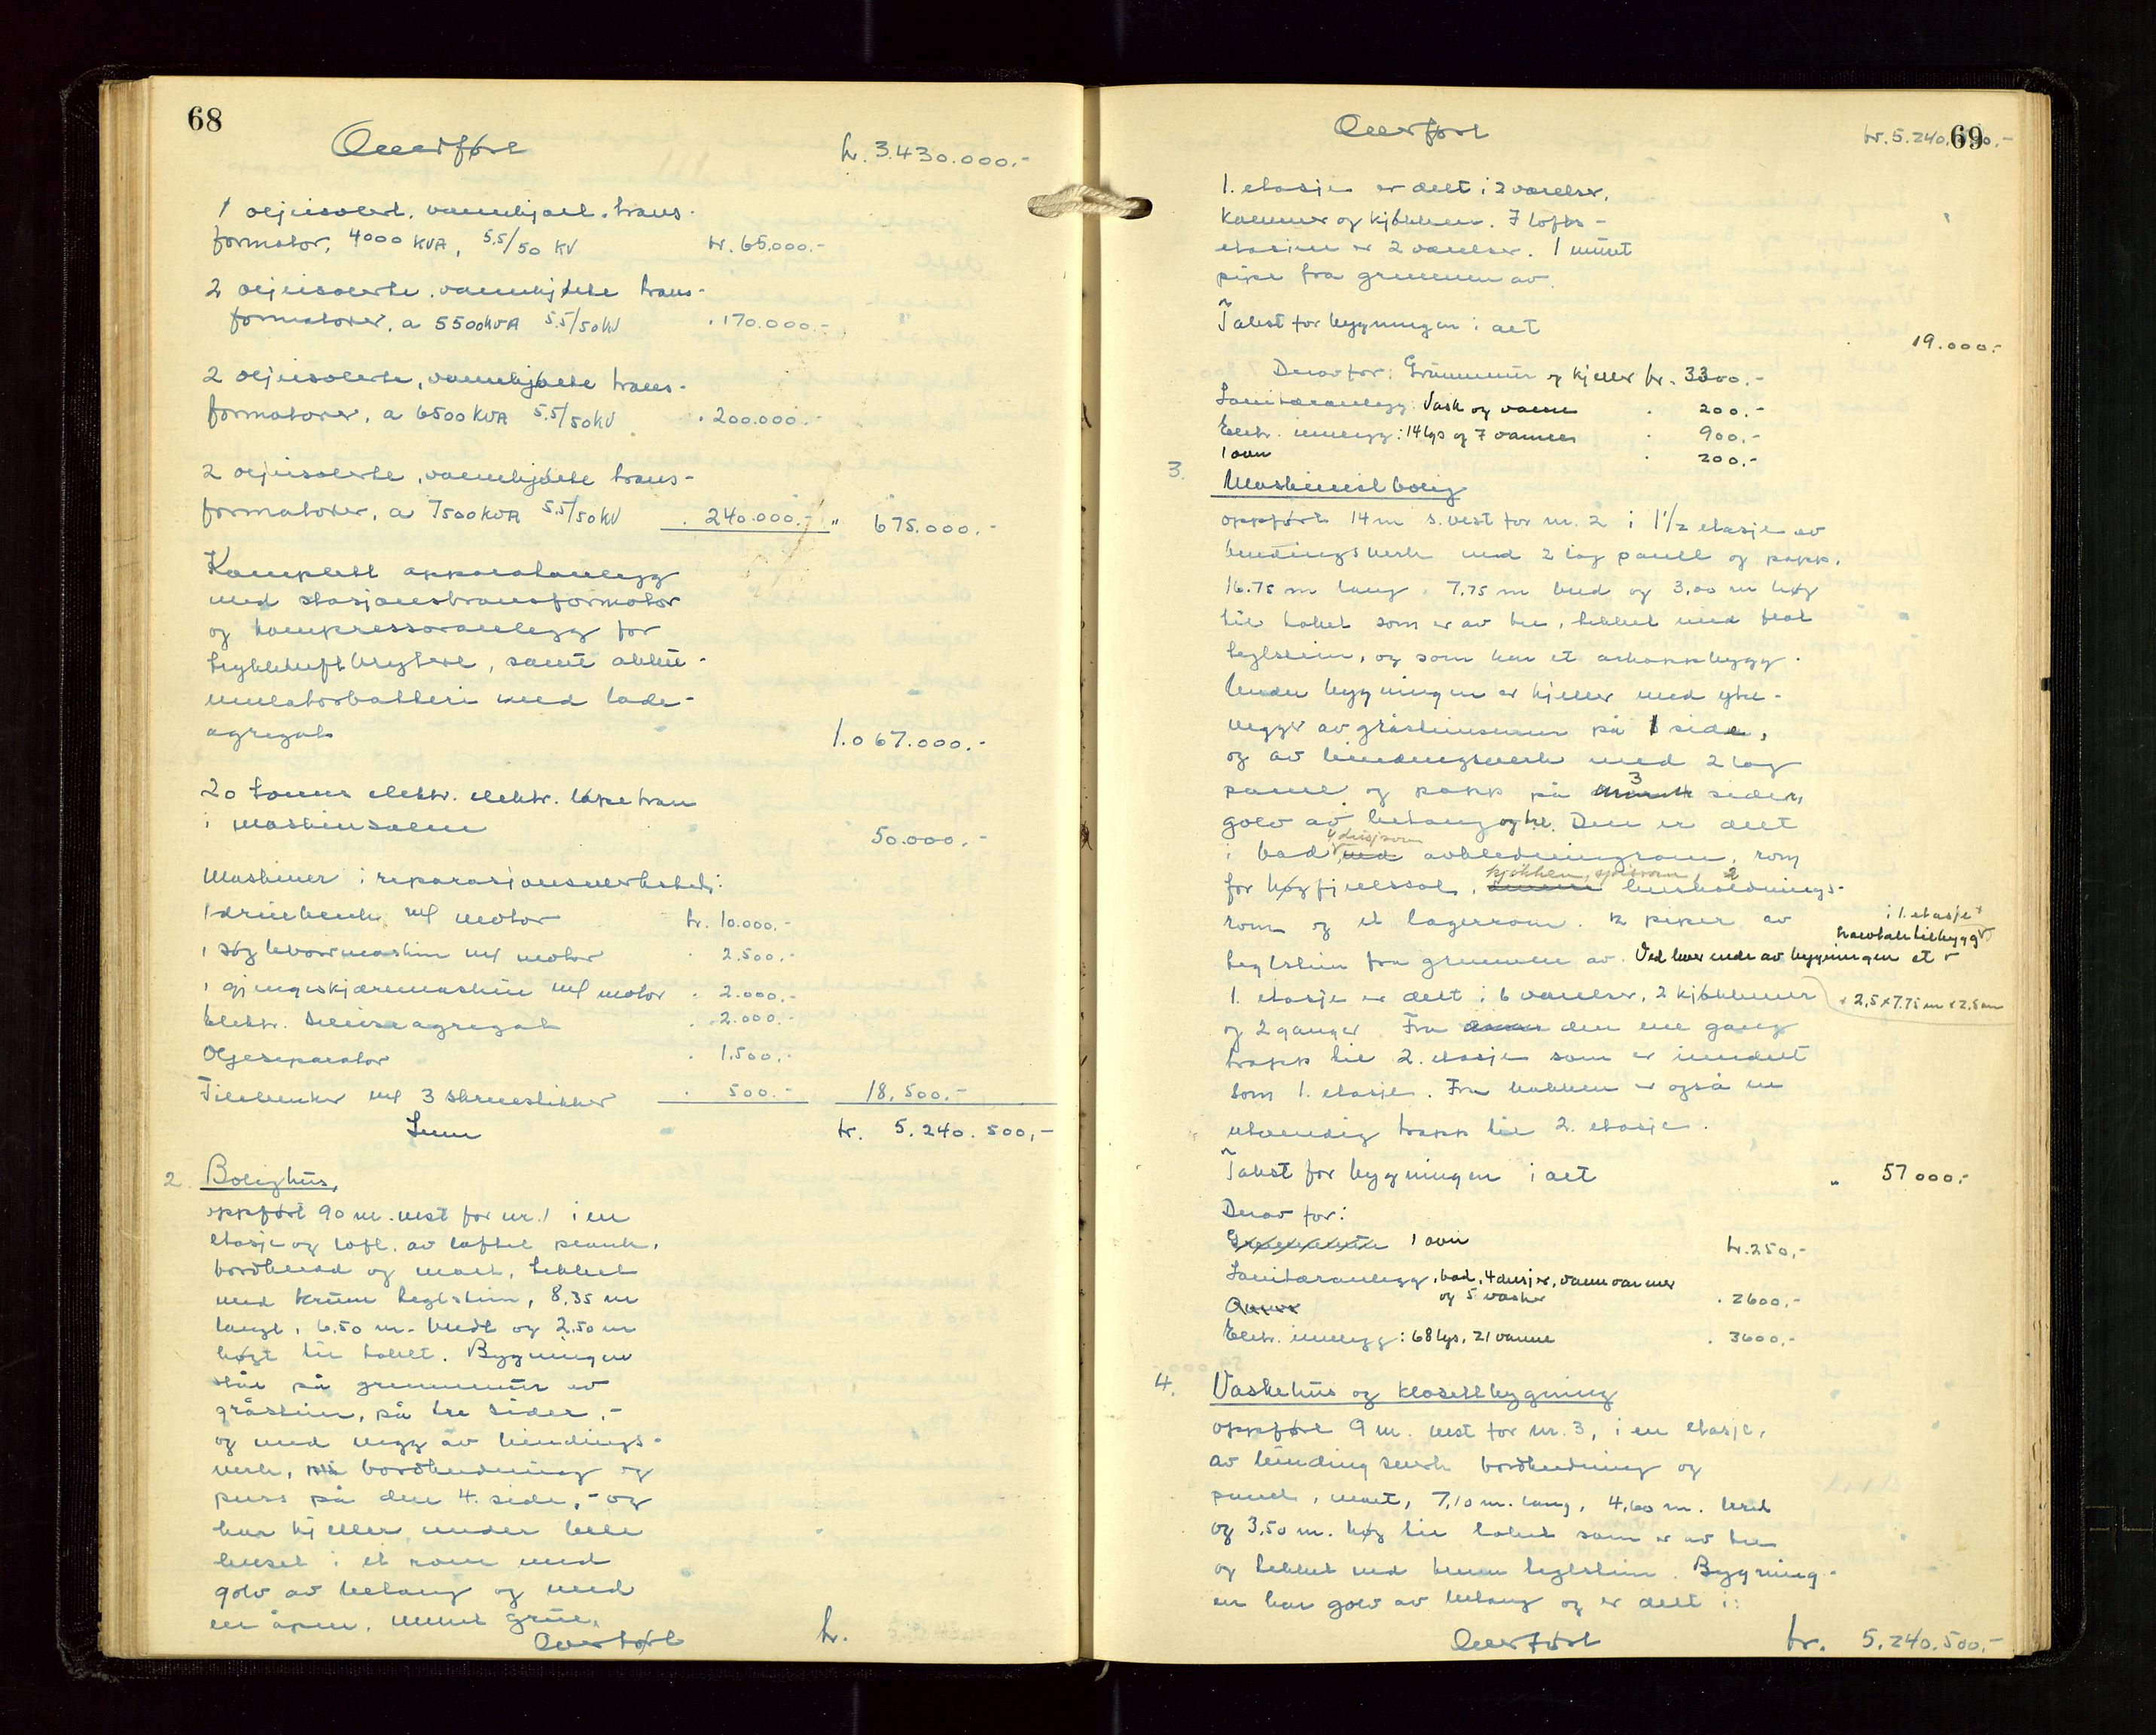 68
Overført
kr. 3.430.000.-
1 oljeisolert, vannkjølt, trans-
formator, 4000 KVA, 5.5/50 KV kr. 65.000.-
2 oljeisolerte, vannkjølte trans-
formatorer, a 5500 KVA 5.5/50 KV " 170.000.-
2 oljeisolerte, vannkjølte trans-
formatorer, a 6500 KVA 5.5/50 KV " 200.000.-
2 oljeisolerte, vannkjølte trans-
formatorer, a 7500 KVA 5.5/50 KV " 240.000.- " 675.000.-
Komplett apparatanlegg
med stasjonstransformator
og kompressoranlegg for
trykkluftbrytere, samt akku-
mulatorbatteri med lade-
agregat 1.067.000.-
20 tonns elektr. elektr. løpekran
i maskinsalen 50.000.-
Maskiner i reparasjonsverksted:
1 dreiebenk m/ motor kr. 10.000.-
1 søyleboremaskin m/ motor " 2.500.-
1 gjengeskjæremaskin m/ motor " 2.000.-
Elektr. sveiseagregat " 2.000.-
Oljeseparator " 1.500.-
Filebenker m/ 3 skruestikker " 500.- 18.500.-
Sum kr. 5.240.500,-
2. Bolighus,
oppført 90 m. vest for nr. 1 i en
etasje og loft, av laftet plank,
bordkledd og malt, tekket
med krum teglstein, 8,35 m
langt, 6.50 m. bredt og 2,50 m
høgt til taket. Bygningen
står på grunnmur av
gråstein, på tre sider,-
og med vegg av bindings-
verk, bordkledning og
puss på den 4. side,- og
har kjeller under hele
huset i et rom med
golv av betong og med
en åpen, muret grue.
Overført kr.
69
Overført kr. 5.240.500.-
1. etasje er delt i 2 værelser,
kammer og kjøkken. I lofts-
etasjen er 2 værelser. 1 muret
pipe fra grunnen av.
Takst for bygningen i alt " 19.000.-
Derav for: Grunnmur og kjeller kr. 3300.-
Sanitæranlegg: Vask og vann " 200.-
Elektr. innlegg: 14 lys og 7 varmer " 900.-
1 ovn " 200.-
3. Maskinistbolig
oppført 14 m s.vest for nr. 2 i 1 1/2 etasje av
bindingsverk med 2 lag panel og papp,
16.75 m lang, 7.75 m bred og 3,00 m høg
til taket som er av tre, tekket med flat
teglstein, og som har et arkoppbygg.
Under bygningen er kjeller med ytre-
vegger av gråsteinsmur på 1 side,
og av bindingsverk med 2 lag
panel og papp på 3 sider,
golv av betong og tre. Den er delt
i bad, 4 dusjrom, avkledningsrom, rom
for høgfjellssol, kjøkken, spiserom, 2 husholdnings-
rom og et lagerrom. 2 piper av
teglstein fra grunnen av. Ved hver ende av bygningen et
i 1. etasje's
høvdaletilbygg
+ 2,5 x 7.75 m x 2,5 m
1. etasje er delt i 6 værelser, 2 kjøkkener
og 2 ganger. Fra den ene gang
trapp til 2. etasje som er inndelt
som 1. etasje. Fra bakken er også en
utvendig trapp til 2. etasje.
Takst for bygningen i alt " 57000.-
Derav for:
1 ovn kr. 250,-
Sanitæranlegg, bad, 4 dusjer, vannvarmer
og 5 vasker " 2600.-
Elektr. innlegg: 68 lys, 21 varme " 3600.-
4. Vaskehus og klosettbygning
oppført 9 m. vest for nr. 3, i en etasje,
av bindingsverk bordkledning og
panel, malt, 7,10 m. lang, 4,60 m. bred
og 3.50 m. høg til taket som er av tre
og tekket med krum teglstein. Bygning-
en har golv av betong og er delt i:
Overført kr. 5.240.500.-